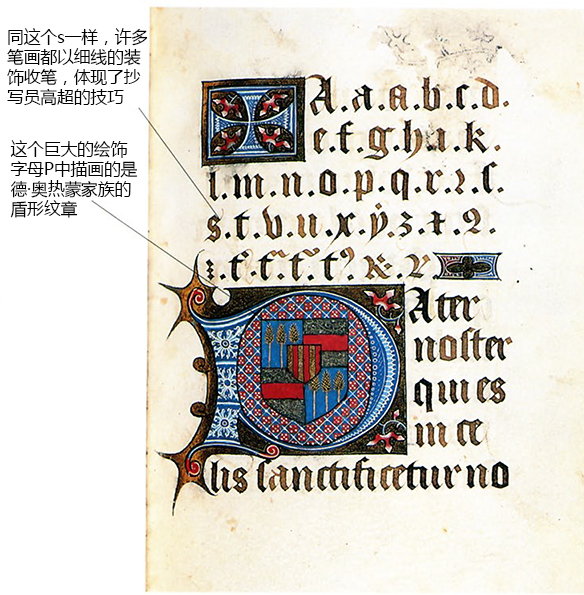 同这个s一样，许多
笔画都以细线的装
饰收笔，体现了抄
写员高超的技巧
这个巨大的绘饰
字母P中描画的是
德·奥热蒙家族的
盾形纹章
A.a.a.b.c.d.
e.f.g.h.i.k.
l.m.n.o.p.q.r.ꝛ.ſ.
s.t.v.u.x.ẏ.z.
Pater
noſter
qui es
in ce
lis ſanctificetur no